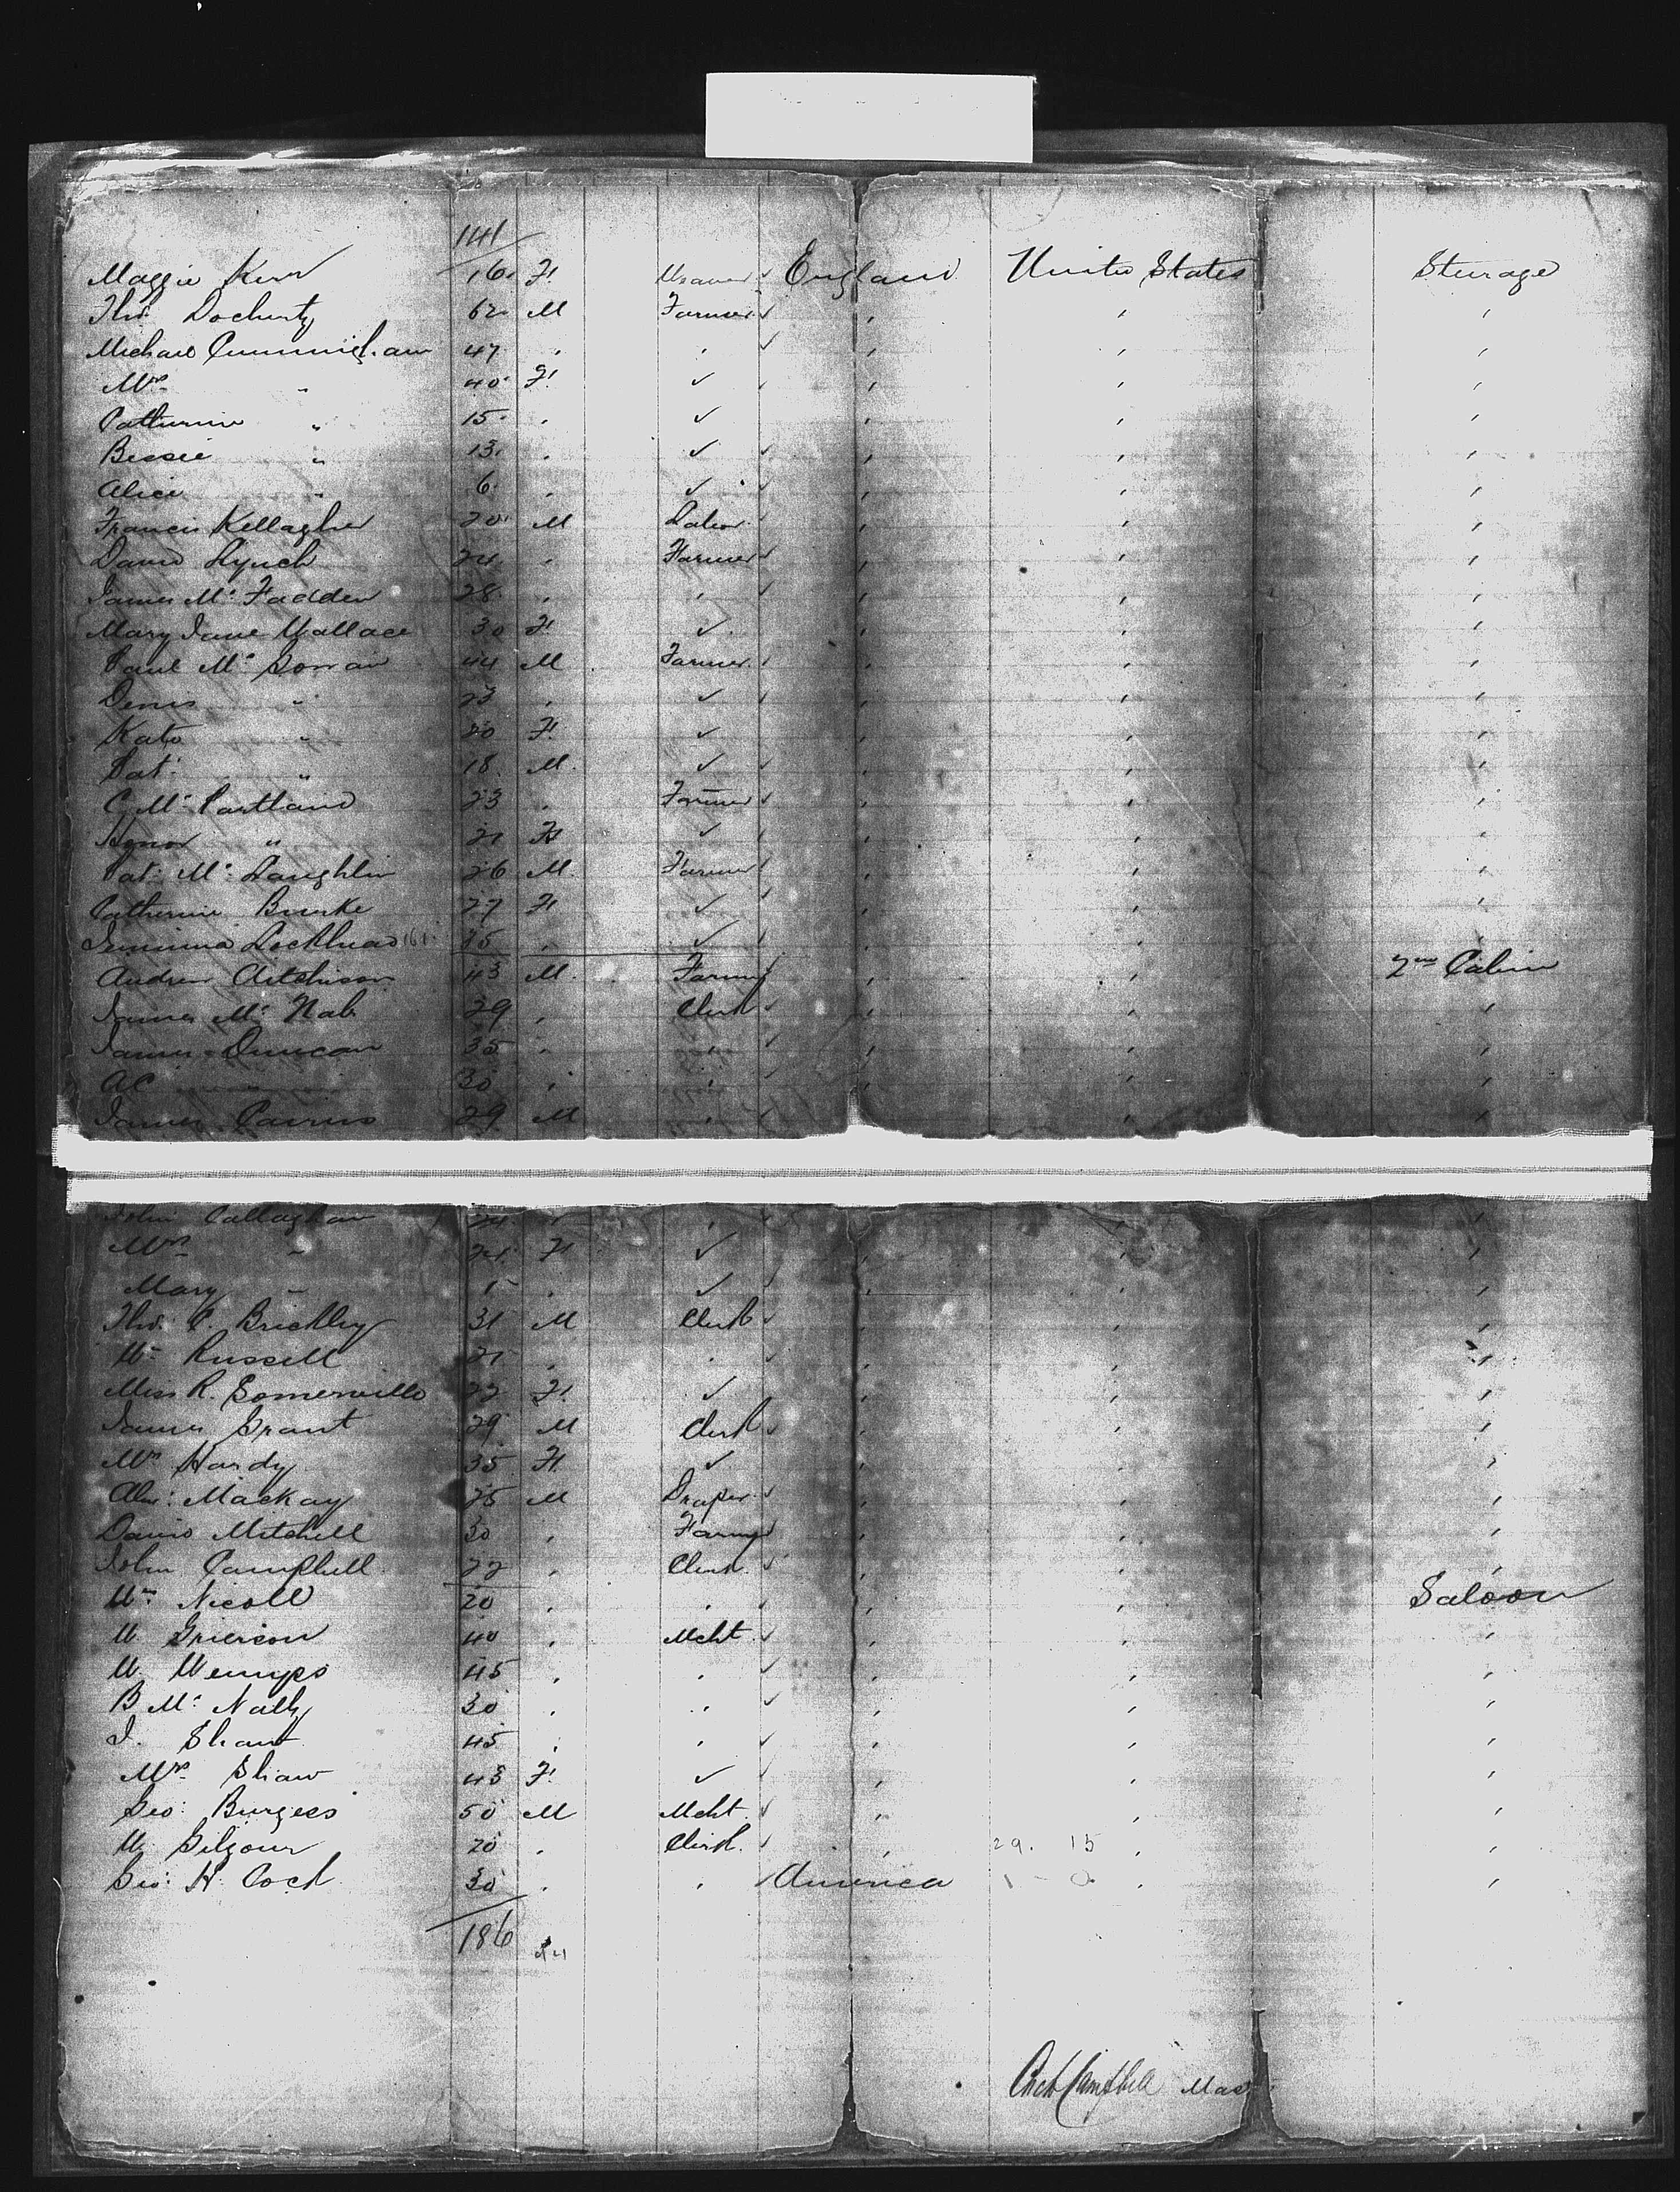 141
Maggie Kerr 16 F. Weaver ✓ England United States Steerage
Tho.s Docherty 62 M Farmer ✓ , , ,
Michael Cunningham 47 , , ✓ , , ,
Mrs " 40 F. ✓ , , ,
Catherine " 15 , ✓ , , ,
Bessie " 13 , ✓ ✓ , , ,
Alice " 6 , ✓ ✓ , , ,
Francis Kellagher 20 M Labor , , ,
David Lynch 24 , Farmer ✓ , , ,
James Mc Fadden 28 , , ✓ , , ,
Mary Jane Wallace 30 F. ✓ , , ,
Paul Mc Gorran 44 M Farmer , , ,
Denis " 23 , ✓ , , ,
Kate " 20 F. ✓ , , ,
Pat: " 18 M. ✓ , , ,
C. Mc Partland 23 , Farmer ✓ , , ,
Honor " 21 F ✓ , , ,
Pat: Mc Laughlin 26 M. Farmer , , ,
Catherine Burke 27 F. ✓ , , ,
Jemima Lockhead 161 , ✓ , , ,
Andrew Aitchison 43 M. Farmer , , 2nd Cabin
James Mc Nab 29 , Clerk ✓ , , ,
James Duncan 35 , , ✓ , , ,
AC " 30 , , ✓ , , ,
James Cairns 29 M , , ,
John Callaghan 24 , , ✓ ,
Mrs " 24 F. ✓ , , ,
Mary " 1 , ✓ , ,
Tho.s C. Brickley 31 M Clerk ✓ , , ,
Wm Russell 21 , , ✓ , , ,
Miss R. Somerville 22 F. ✓ , , ,
James Grant 29 M Clerk ✓ , , ,
Mrs Hardy 35 F. ✓ , , ,
Alex: Mackay 25 M Draper ✓ , , ,
David Mitchell 30 , Farmer , , ,
John Campbell 22 , Clerk ✓ , , ,
Wm Nicoll 20 , , ✓ , , Saloon
W. Grierson 40 , Mcht ✓ , , ,
W. Wemyss 45 , , ✓ , , ,
B Mc Nally 30 , , ✓ , , ,
J. Shaw 45 , , ✓ , , ,
Mrs Shaw 43 F. ✓ ✓ , , ,
Geo: Burgess 50 M Mcht. ✓ , , ,
W. Gilgour 20 , Clerk. ✓ , 29. 15 , ,
Geo: H. Cock 30 , , America , ,
186
Arch Campbell Mast